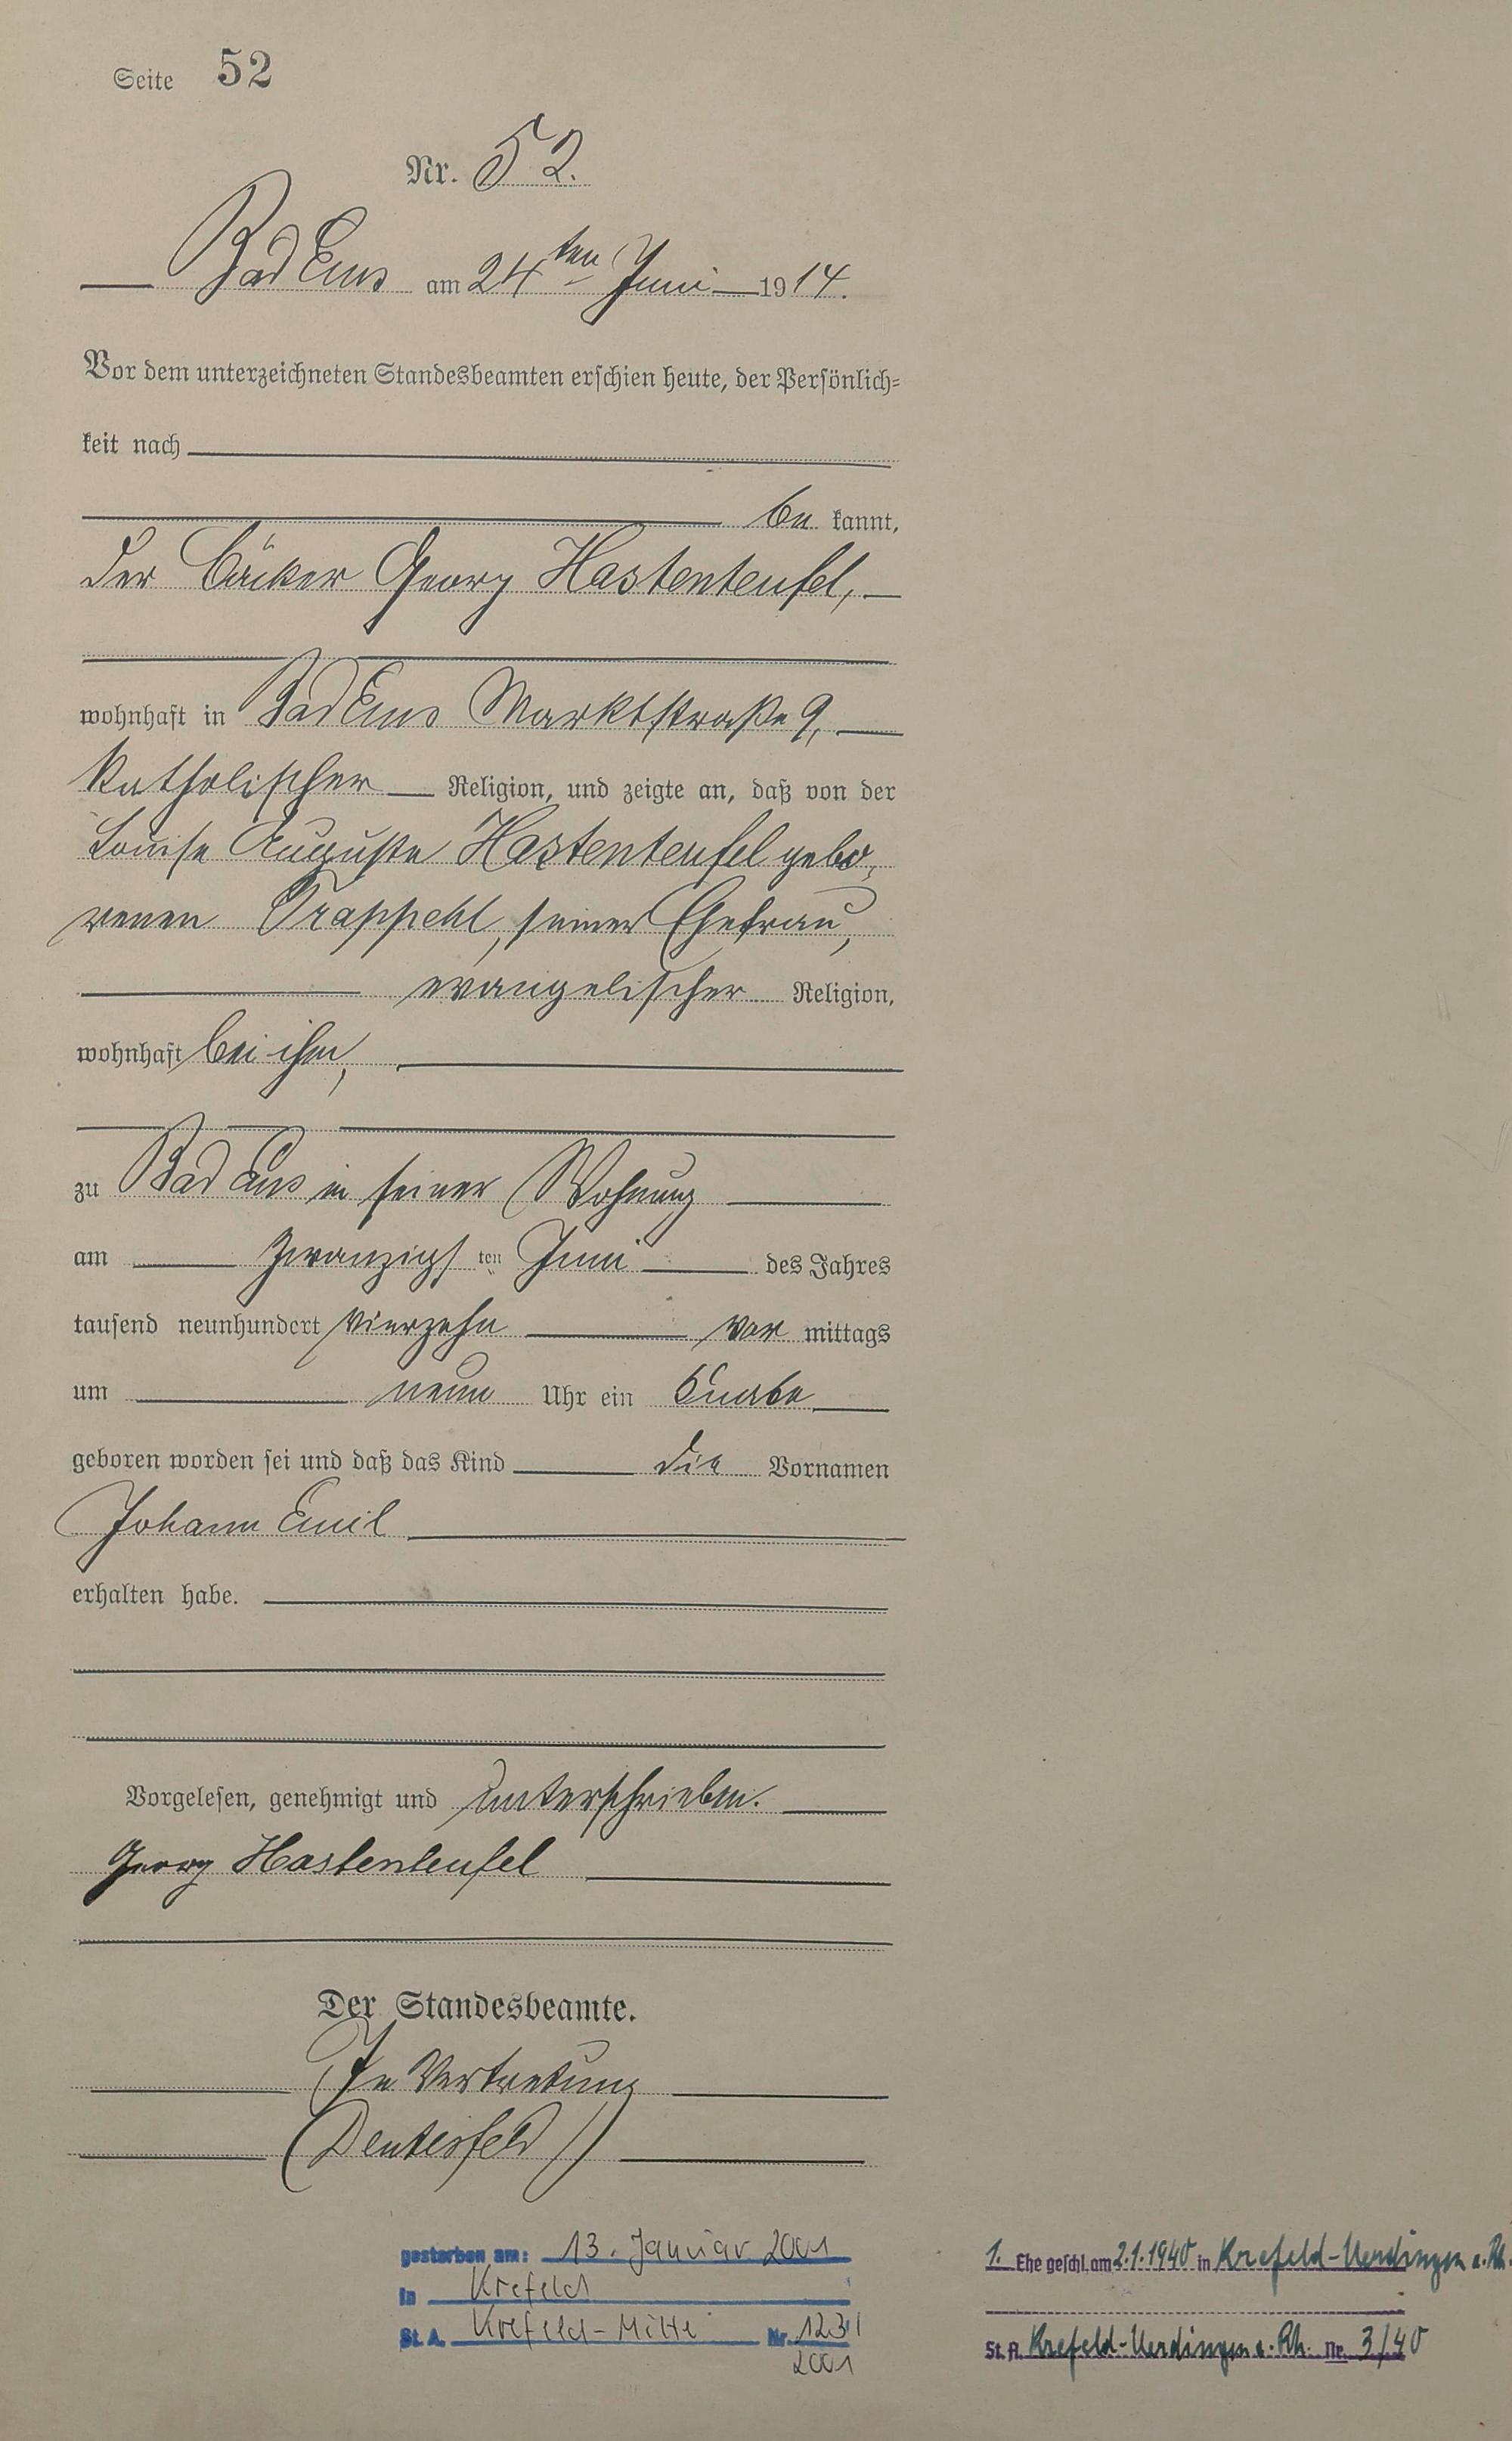 Seite 52
Nr. 52.
Bad Ems am 24ten Juni 1914.
Vor dem unterzeichneten Standesbeamten erschien heute, der Persönlich=
keit nach
be kannt,
der Bäcker Georg Hastenteufel,
wohnhaft in Bad Ems Marktstraße 9,
katholischer Religion, und zeigte an, daß von der
Louise Auguste Hastenteufel gebo,
renen Trappehl, seiner Ehefrau,
evangelischer Religion,
wohnhaft bei ihm,
zu Bad Ems in seiner Wohnung
am zwanzigs ten Juni des Jahres
tausend neunhundert vierzehn vor mittags
um neun Uhr ein Knabe
geboren worden sei und daß das Kind die Vornamen
Johann Emil
erhalten habe.
Vorgelesen, genehmigt und unterschrieben.
Georg Hastenteufel
Der Standesbeamte.
In Vertretung
gestorben am: 13. Januar 2001
in Krefeld
St. A. Krefeld-Mitte Nr. 123
2001
1. Ehe geschl. am 2.1.1940 in Krefeld-Uerdingen a. Rh.
St. A. Krefeld-Uerdingen a. Rh. Nr. 3/40